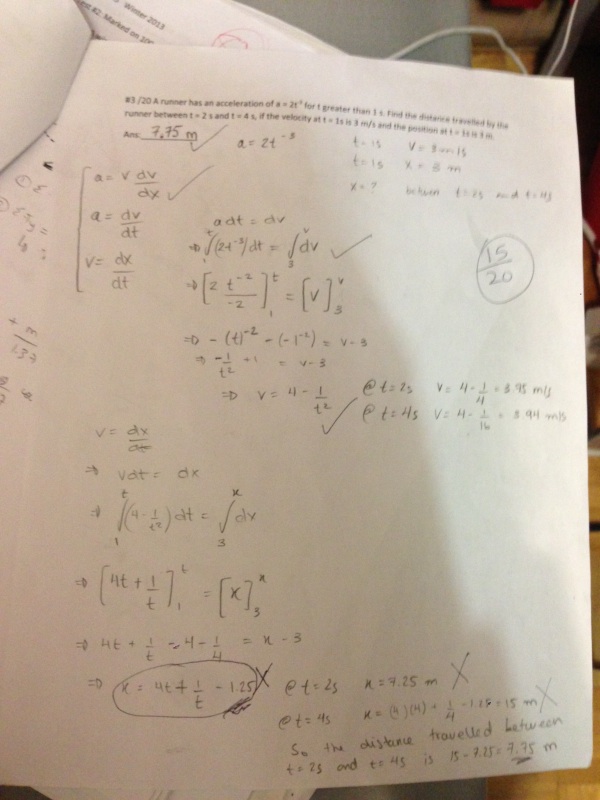 Winter 2013
#2: Marked on
#3 /20 A runner has an acceleration of a = 2t⁻³ for t greater than 1 s. Find the distance travelled by the
runner between t = 2 s and t = 4 s, if the velocity at t = 1s is 3 m/s and the position at t = 1s is 3 m.
Ans: 7.75 m
a = 2t⁻³
t = 1s V = 3 m/s
t = 1s x = 3 m
x = ? between t = 2s and t = 4s
a = v dv/dx
a = dv/dt
v = dx/dt
15/20
a dt = dv
⇒ ∫₁ᵗ (2t⁻³) dt = ∫₃ᵛ dv
⇒ [2 t⁻²/-2]₁ᵗ = [V]₃ᵛ
⇒ - (t)⁻² - (-1⁻²) = v - 3
⇒ -1/t² + 1 = v - 3
⇒ v = 4 - 1/t²
@ t = 2s V = 4 - 1/4 = 3.75 m/s
@ t = 4s V = 4 - 1/16 = 3.94 m/s
v = dx/dt
⇒ v dt = dx
⇒ ∫₁ᵗ (4 - 1/t²) dt = ∫₃ˣ dx
⇒ [4t + 1/t]₁ᵗ = [x]₃ˣ
⇒ 4t + 1/t - 4 - 1/4 = x - 3
⇒ x = 4t + 1/t - 1.25
@ t = 2s x = 7.25 m
@ t = 4s x = (4)(4) + 1/4 - 1.25 = 15 m
So the distance travelled between
t = 2s and t = 4s is 15 - 7.25 = 7.75 m